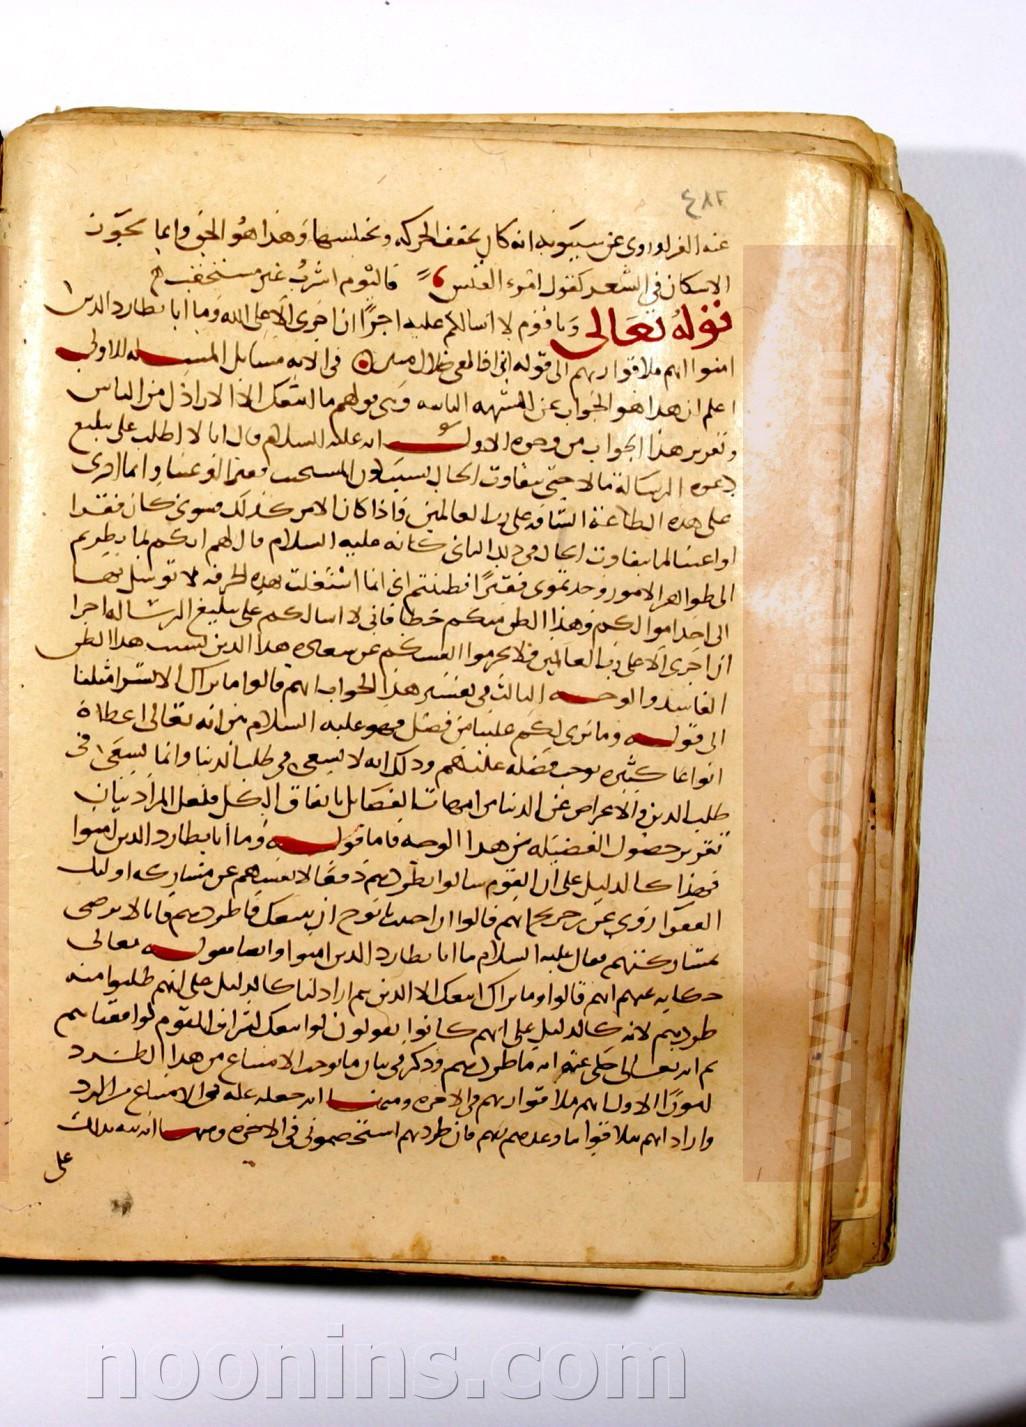 ٤٨٢
عنه الفرا وروى عن سيبويه انه كان يخفف الحركه ويختلسها وهذا هو الحق وانما يجوز
الاسكان في الشعر كقول امرء القيس فاليوم اشرب غير مستحقب
قوله تعالى ويا قوم لا اسالكم عليه اجرًا ان اجرى الا على الله وما انا بطارد الذين
امنوا انهم ملاقوا ربهم الى قوله اني اذا لفي ضلال مبين في الايه مسايل المسله الاولى
اعلم ان هذا هو الجواب عن الشبهه الثانيه وهي قولهم ما اتبعك الا الاراذل من الناس
وتقرير هذا الجواب من وجوه الاول انه عليه السلام قال انا لا اطلب على تبليغ
دعوه الرسالة مالا حتى يتفاوت الحال بسبب كون المستجيب فقيرا او غنيا وانما اجرى
على هذه الطاعة الشاقه على رب العالمين فاذا كان الامر كذلك فسوى كان فقيرا
او غنيا لما يتفاوت الحال في ذلك الثاني كانه عليه السلام قال لهم انكم لما نظرتم
الى ظواهر الامور وجدتموني فقيرًا فظننتم اني انما اشتغلت بهذه الحرفه لا توسل بها
الى اخذ اموالكم وهذا الظن منكم خطا فاني لا اسالكم على تبليغ الرساله اجرا
ان اجرى الا على رب العالمين فلا تحرموا انفسكم عن سعاده هذا الدين بسبب هذا الظن
الفاسد والوجه الثالث في تفسير هذا الجواب انهم قالوا ما نراك الا بشرا مثلنا
الى قوله وما نرى لكم علينا من فضل فهو عليه السلام بين انه تعالى اعطاه
انواعا كثيره توجب فضله عليهم وذلك انه لا يسعى في طلب الدنيا وانما يسعى في
طلب الدين والاعراض عن الدنيا من امهات الفضايل باتفاق الكل فلعل المراد بيان
تقرير حصول الفضيله من هذا الوجه فاما قوله وما انا بطارد الذين امنوا
فهذا كالدليل على ان القوم سالوا طردهم دفعا لانفسهم عن مشاركه اوليك
الفقرا روى عن جريج انهم قالوا ان احببت يا نوح ان نتبعك فاطردهم فانا لا نرضى
بمشاركتهم فقال عليه السلام ما انا بطارد الذين امنوا وايضا فقوله تعالى
حكايه عنهم انهم قالوا وما نراك اتبعك الا الذين هم اراذلنا كالدليل على انهم طلبوا منه
طردهم لانه كالدليل على انهم كانوا يقولون لو اتبعك اشراف القوم لوافقناهم
ثم انه تعالى حكى عنه انه ما طردهم وذكر في بيان ما يوجب الامتناع من هذا الطرد
امورًا الاول انهم ملاقوا ربهم في الاخره ومنها انه جعله عله في الامتناع من الطرد
واراد انهم ملاقوا ما وعدهم ربهم فان طردتهم استخصموني في الاخره ومنها انه نبه بذلك
على
noonins.com
www.noonins.com